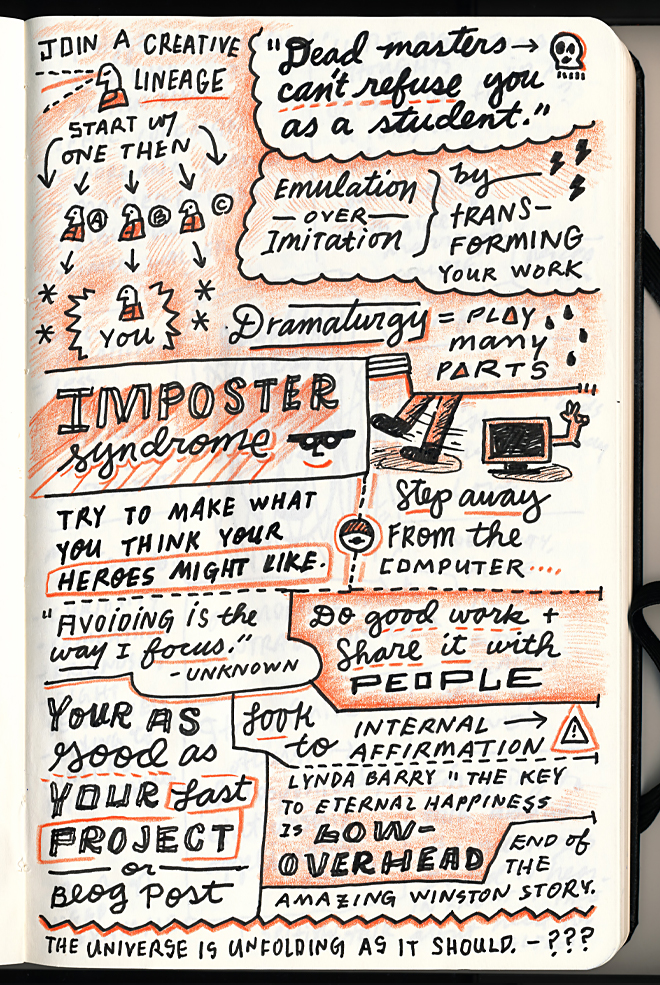 JOIN A CREATIVE
LINEAGE
START W/
ONE THEN
A B C
YOU
"Dead masters
can't refuse you
as a student."
Emulation
— OVER —
Imitation
by
tRANS-
FORMING
YOUR WORK
Dramaturgy = PLAY
many
PARTS
IMPOSTER
syndrome
TRY TO MAKE WHAT
YOU THINK YOUR
HEROES MIGHT LIKE.
Step away
FROM the
COMPUTER....
"AVOIDING is the
way I focus."
- UNKNOWN
Do good work +
Share it with
PEOPLE
YOUR AS
good as
YOUR last
PROJECT
— or —
BLOG POST
look
to INTERNAL
AFFIRMATION
LYNDA BARRY " THE KEY
TO ETERNAL HAPPINESS
IS LOW-
OVERHEAD
END of
THE
AMAZING WINSTON STORY.
THE UNIVERSE IS UNFOLDING AS IT SHOULD. - ???